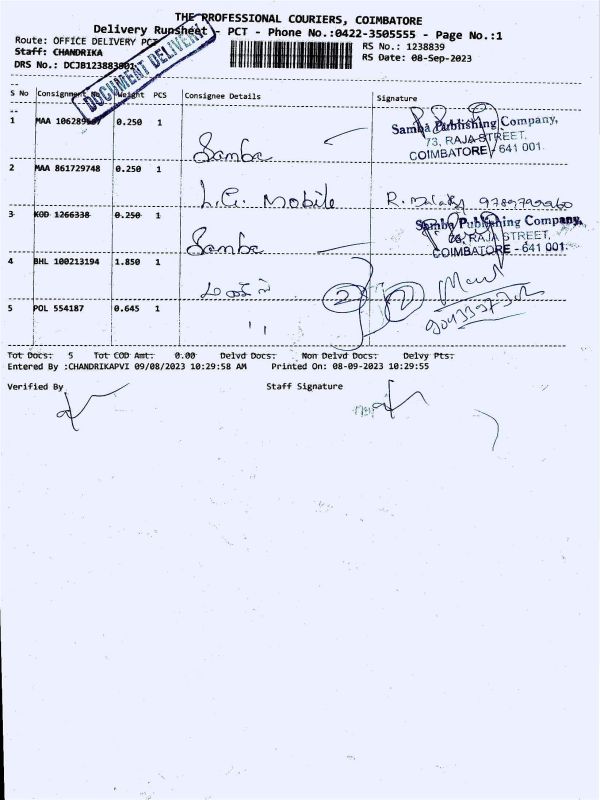 THE PROFESSIONAL COURIERS, COIMBATORE
Delivery Runsheet - PCT - Phone No.:0422-3505555 - Page No.:1
Route: OFFICE DELIVERY PCT
RS No.: 1238839
Staff: CHANDRIKA
RS Date: 08-Sep-2023
DRS No.: DCJB123883901
DOCUMENT DELIVERY
S No Consignment No Weight PCS Consignee Details Signature
1 MAA 0.250 1 Samba
Samba Publishing Company,
73, RAJA STREET,
COIMBATORE - 641 001.
2 MAA 861729748 0.250 1 Mobile
3 KOD 1266338 0.250 1 Samba
Samba Publishing Company,
RAJA STREET,
COIMBATORE - 641 001.
4 BHL 100213194 1.850 1
2 2
5 POL 554187 0.645 1 ''
Tot Docs: 5 Tot COD Amt: 0.00 Delvd Docs: Non Delvd Docs: Delvy Pts:
Entered By :CHANDRIKAPVI 09/08/2023 10:29:58 AM Printed On: 08-09-2023 10:29:55
Verified By Staff Signature